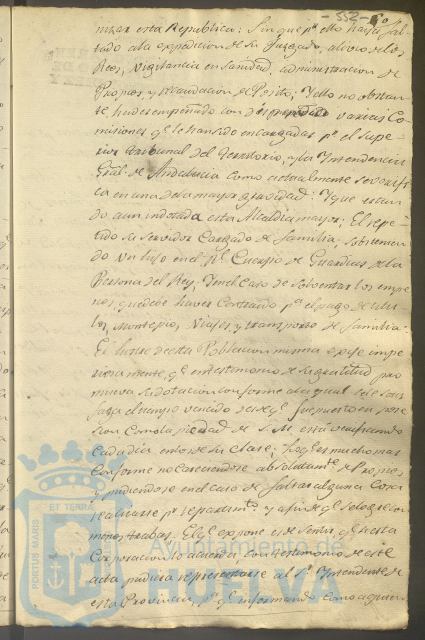 - 552 - 60
esta Republica: Sin que pr ello haya fal-
tado a la expedicion de su Juzgado, alivio de los
Reos, Vigilancia en Sanidad, administracion de
Propios, y recaudacion de Posito; Y ello no obstan-
te, ha desempeñado con varias Co-
misiones qe le han sido encargadas pr el supe-
rior tribunal del territorio, y la Yntendencia
Gral de Andalucia como actualmente se verifi-
ca en una de la mayor gravedad: Y que estan-
do aun indotada esta Alcaldia mayor; El repe-
tido su servidor Cargado de familia; sobstenien-
do un hijo en el Rl Cuerpo de Guardias de la
Persona del Rey, Y en el Caso de Solventar los empe-
ños, que debe haver Contraido pa el pago de titu-
los, Montepio, Viajes, y transporte de familia:
El lustre de esta Poblacion misma exije impe-
riosamente, qe en testimonio de su gratitud pro-
mueva su dotacion conforme a la qual se le satis-
faga el tiempo vencido desde qe fue puesto en pose-
sion Como la piedad de S. M. está verificando
cada dia en los de su Clase; lo qe es mucho mas
Conforme no careciendose absolutamte de Propios
y pudiendose en el caso de faltar alguna Cosa
realizarse pr repartimto y a fin de qe se logre con
menos trabas. El qe expone es de sentir qe esta
Corporacion lo acuerde con testimonio de este
acta, pudiera representarse al Sr Yntendente de
esta Provincia, pa qe informando Como
PORTUS MARIS ET TERRAE
Ayuntamiento de
HUELVA